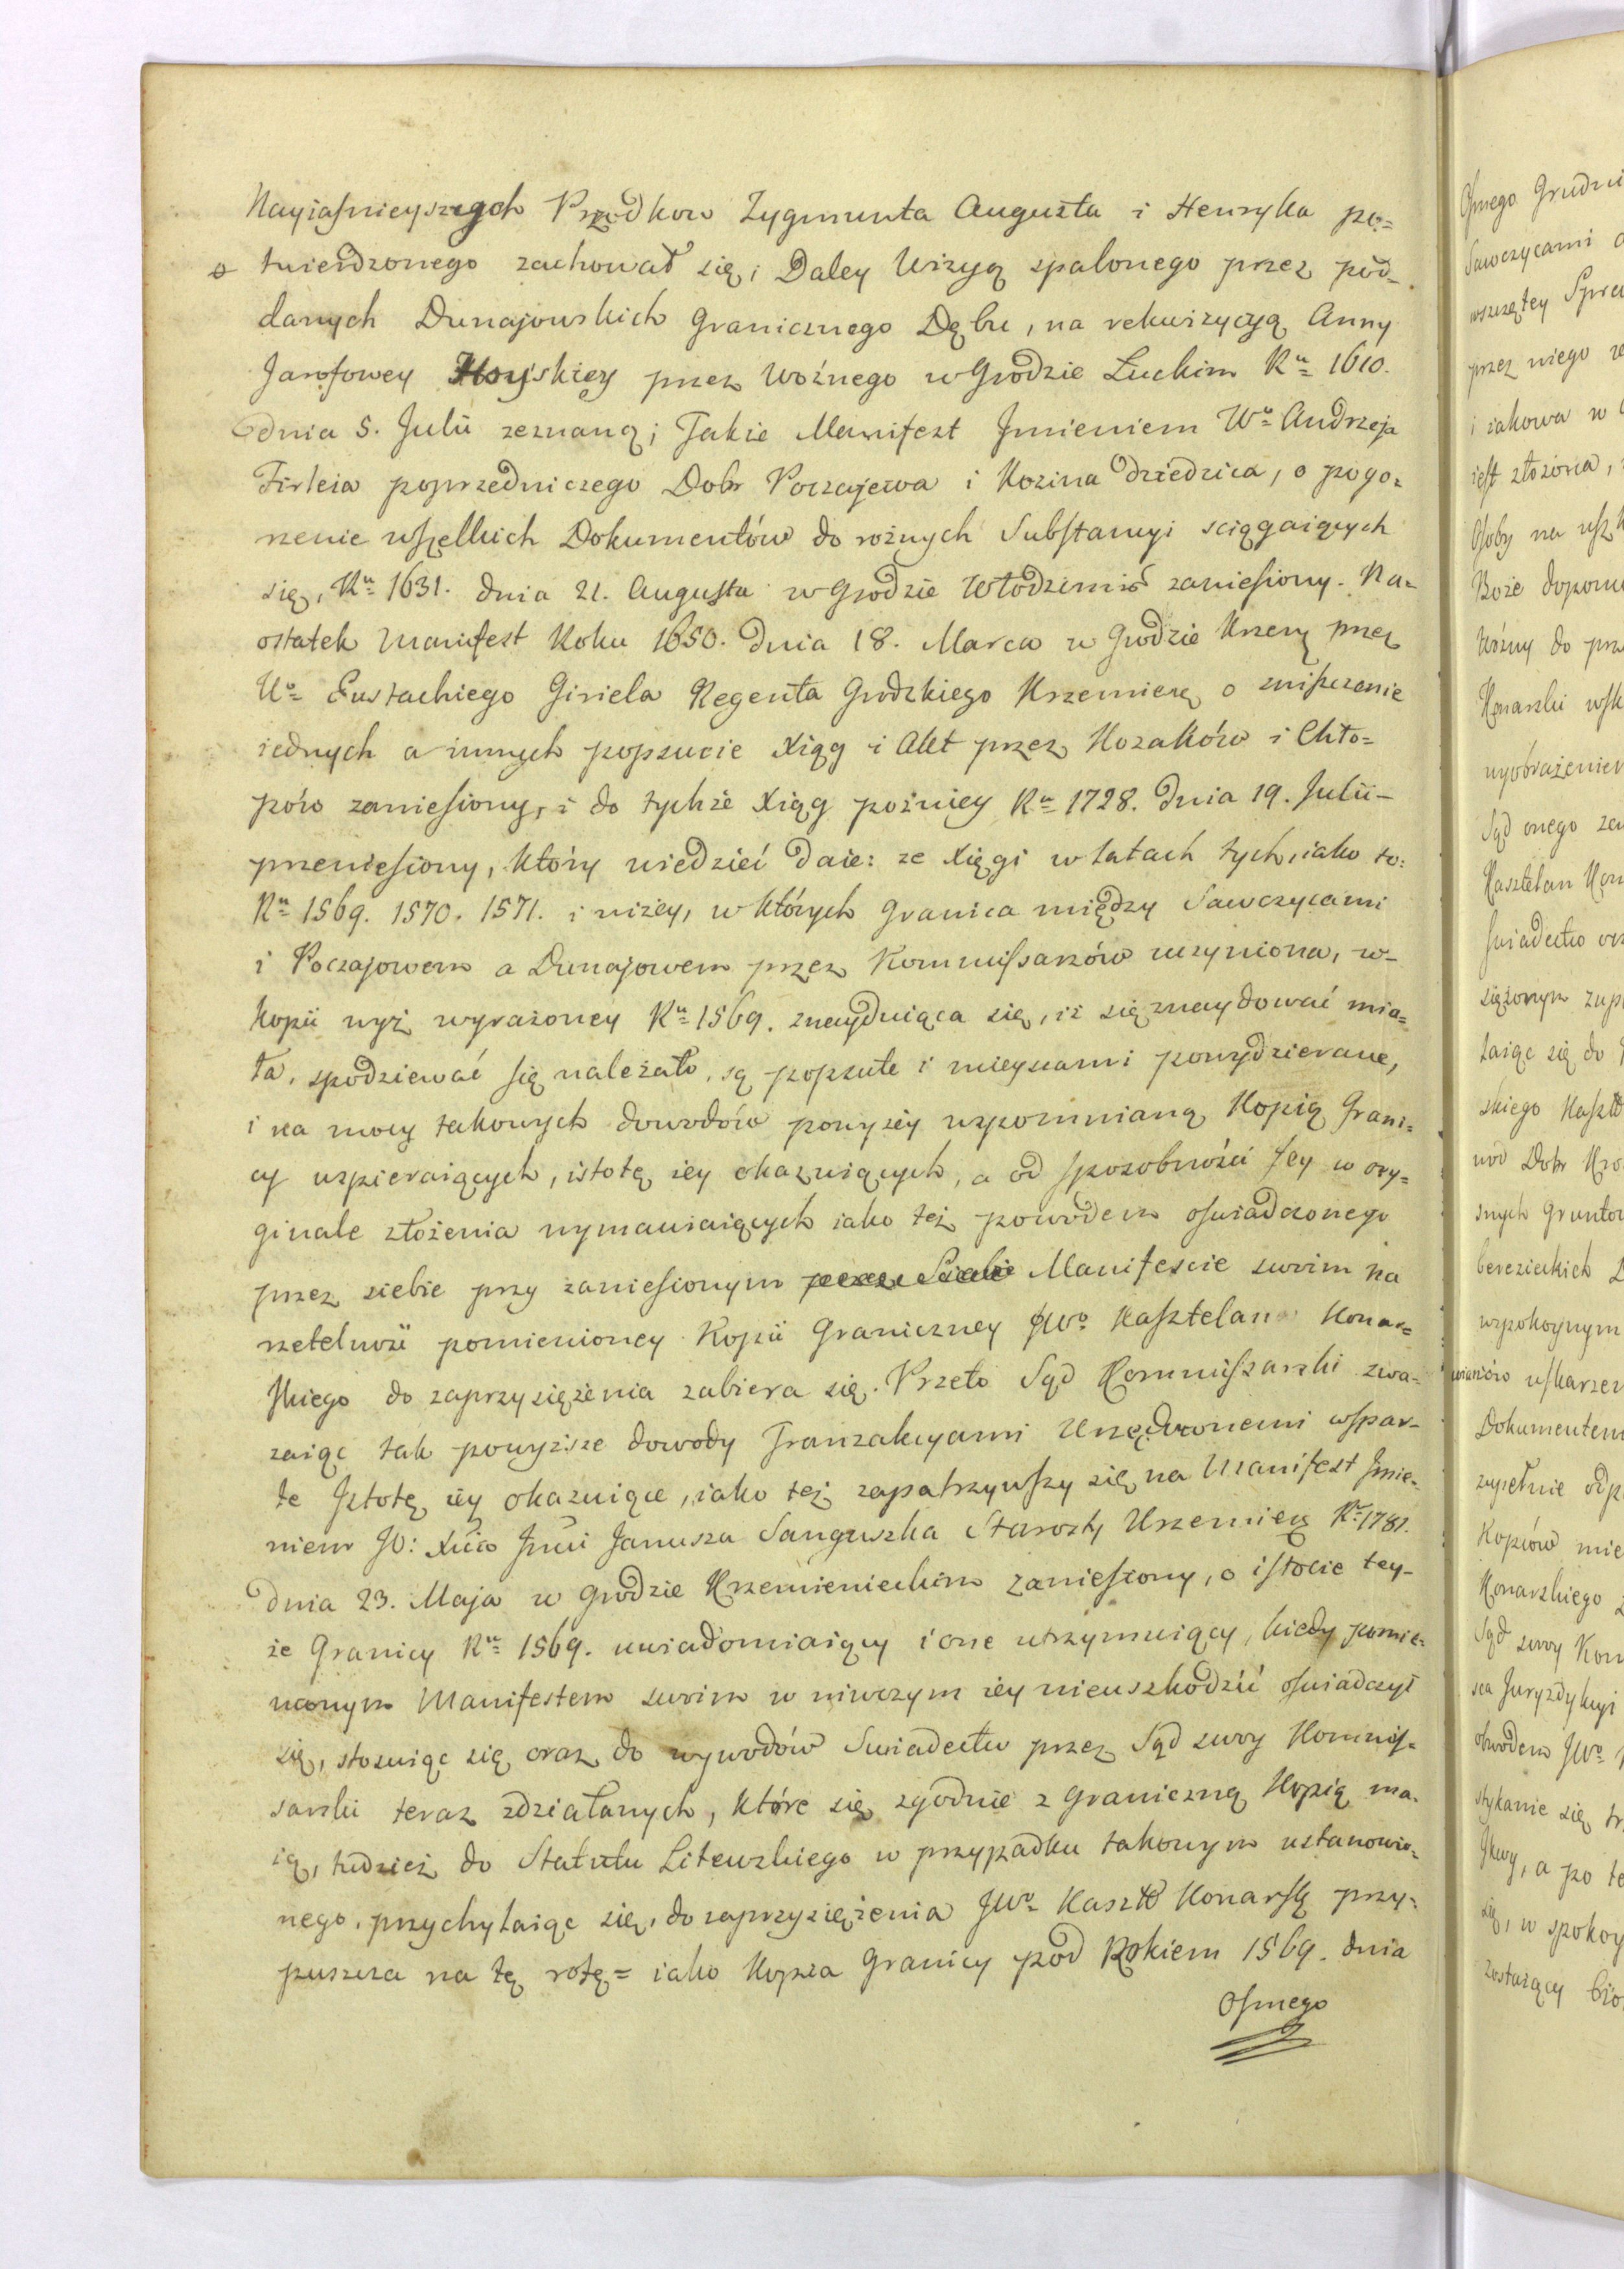 Nayiasnieyszych Przodkow Zygmunta Augusta i Henryka po=
twierdzonego zachował się; Daley Wizyą spalonego przez pod-
danych Dunajowskich Granicznego Dębu, na rekwizycyą Anny
Jarofowey Hoyskiey przez Woźnego w Grodzie Luckim Ru= 1610.
dnia 5. Julii zeznaną; Także Manifest Jmieniem Wo= Andrzeja
Firleia poprzedniczego Dobr Poczajewa i Kozina Dziedzica, o pogo=
rzenie wszelkich Dokumentów do rożnych Substancyi sciągaiących
się, Ru= 1631. dnia 21. Augusta w Grodzie Włodzimir zaniesiony. Na=
ostatek Manifest Roku 1650. dnia 18. Marca w Grodzie Krzemę przez
Uo= Eustachiego Giziela Regenta Grodzkiego Krzemienę o zniszczenie
iednych a innych popsucie Xiąg i Akt przez Kozaków i Chło=
pów zaniesiony, i do tychże Xiąg pożniey Ru= 1728. dnia 19. Julii-
przeniesiony, który wiedzieć daie: że Xięgi w latach tych, iako to:
Ru= 1569. 1570. 1571. i niżey, w których Granica między Sawczycami
i Poczajowem a Dunajowem przez Kommissarzów uczyniona, w-
kopii wyż wyrażoney Ru= 1569. znayduiąca się, iż się znaydować mia=
ła, spodziewać się należało, są popsute i mieyscami powydzierane,
i na mocy takowych dowodów powyżey wspomnianą Kopią Grani=
cy wspieraiących, istotę iey okazuiących, a od sposobności Jey w ory=
ginale złożenia wymawiaiących iako też powodem oswiadczonego
przez siebie przy zaniesionym Manifescie swoim na
rzetelność pomienioney Kopii Graniczney JWo= Kasztelana Konar=
skiego do zaprzysiężenia zabiera się. Przeto Sąd Kommissarski zwa-
żaiąc tak powyższe dowody Tranzakcyami Urzędownemi wspar-
te Jstotę iey okazuiące, iako też zapatrzywszy się na Manifest Jmie-
niem JO: Xcia Jmci Janusza Sanguszka Starosty Krzemienę Ru= 1781.
dnia 23. Maja w Grodzie Krzemienieckim zaniesiony, o istocie tey-
że Granicy Ru= 1569. uwiadomiaiący i one utrzymuiący, kiedy pomie=
nionym Manifestem swoim w niwczym iey nieuszkodzić oswiadczył
się, stosuiąc się oraz do wywodów Swiadectw przez Sąd swoy Kommis=
sarski teraz zdziałanych, które się zgodnie z Graniczną Kopią ma-
ią, tudzież do Statutu Litewskiego w przypadku takowym ustanowio=
nego, przychylaiąc się, do zaprzysiężenia JWo= Kaszt Konarsk przy=
puszcza na tę rotę= iako Kopia Granicy pod Rokiem 1569. dnia
Osmego